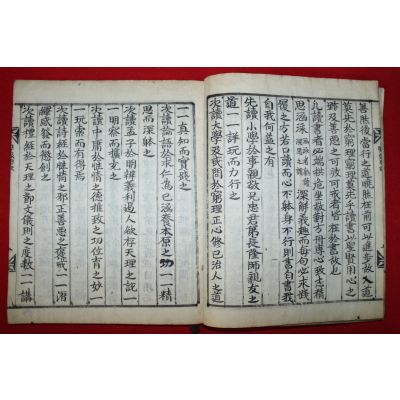 善然後當行之道曉然在前可以進步故入道
莫先於窮理窮理莫先乎讀書以聖賢用心之
跡及善惡之可效可戒者皆在於書故也
凡讀書者必端拱危坐敬對方冊專心致志精
思涵泳深解義趣而每句必求踐
履之方若口讀而心不躰身不行則書自書我
自我何益之有
先讀小學於事親敬兄忠君弟長隆師親友之
道一一詳玩而力行之
次讀大學及或問於窮理正心修己治人之道
一一真知而實踐之
次讀論語於求仁爲己涵養本原之功一一精
思而深躰之
次讀孟子於明辨義利遏人欲存天理之說一
一明察而擴充之
次讀中庸於性情之德推致之功位育之妙一
一玩索而有得焉
次讀詩經於性情之邪正善惡之褒戒一一潛
繹感發而懲創之
次讀禮經於天理之節文儀則之度數一一講